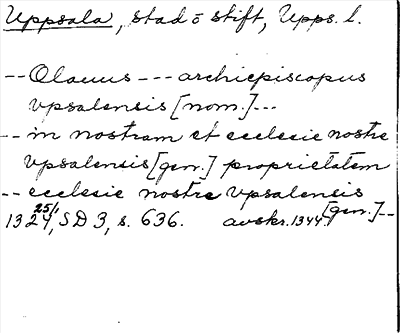 Uppsala, stad o stift, Upps. l.
-- Olauus --- archiepiscopus
vpsalensis [nom.] ---
-- in nostram et ecclesie nostre
vpsalensis [gen.] proprietatem
-- ecclesie nostre vpsalensis
[gen.] --
25/1
1324, SD 3, s. 636. avskr. 1344.